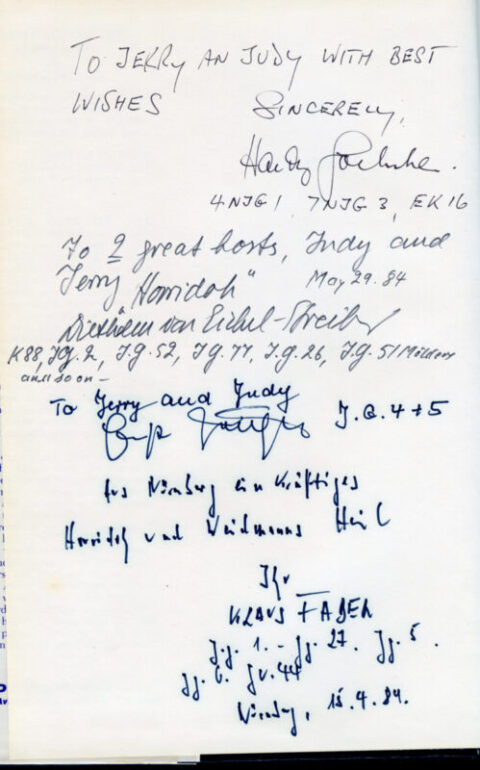 To JERRY AN JUDY WITH BEST
WISHES SINCERELY,
Hardy
4 NJG 1 7 NJG 3, EK 16
To 2 great hosts, Judy and
Jerry Horridoh"
May 29. 84
Diethelm von Eichel-Streiber
K88, J.G. 2, J.G. 52, J.G. 77, J.G. 26, J.G. 51 Mölders
and so on –
To Jerry and Judy
J.G. 4 + 5
Aus Nürnberg ein kräftiges
Horridoh und Weidmanns Heil
Ihr
KLAUS FABER
Jg. 1. - Jg. 27. Jg. 5.
Jg. 6. JV. 44
Nürnberg, 15.4.84.